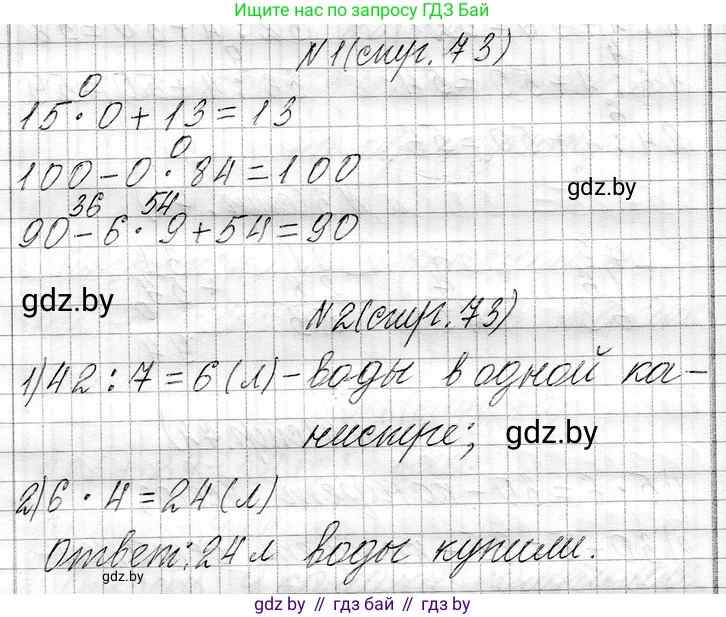 Ищите нас по запросу ГДЗ Бай
N1(стр. 73)
0
15 · 0 + 13 = 13
0
100 - 0 · 84 = 100
36 54
90 - 6 · 9 + 54 = 90
gdz.by
gdz.by
N2(стр. 73)
1) 42 : 7 = 6 (л) - воды в одной ка-
нистре;
gdz.by
2) 6 · 4 = 24 (л)
Ответ: 24 л воды купили.
gdz.by
gdz by // гдз бай // гдз by